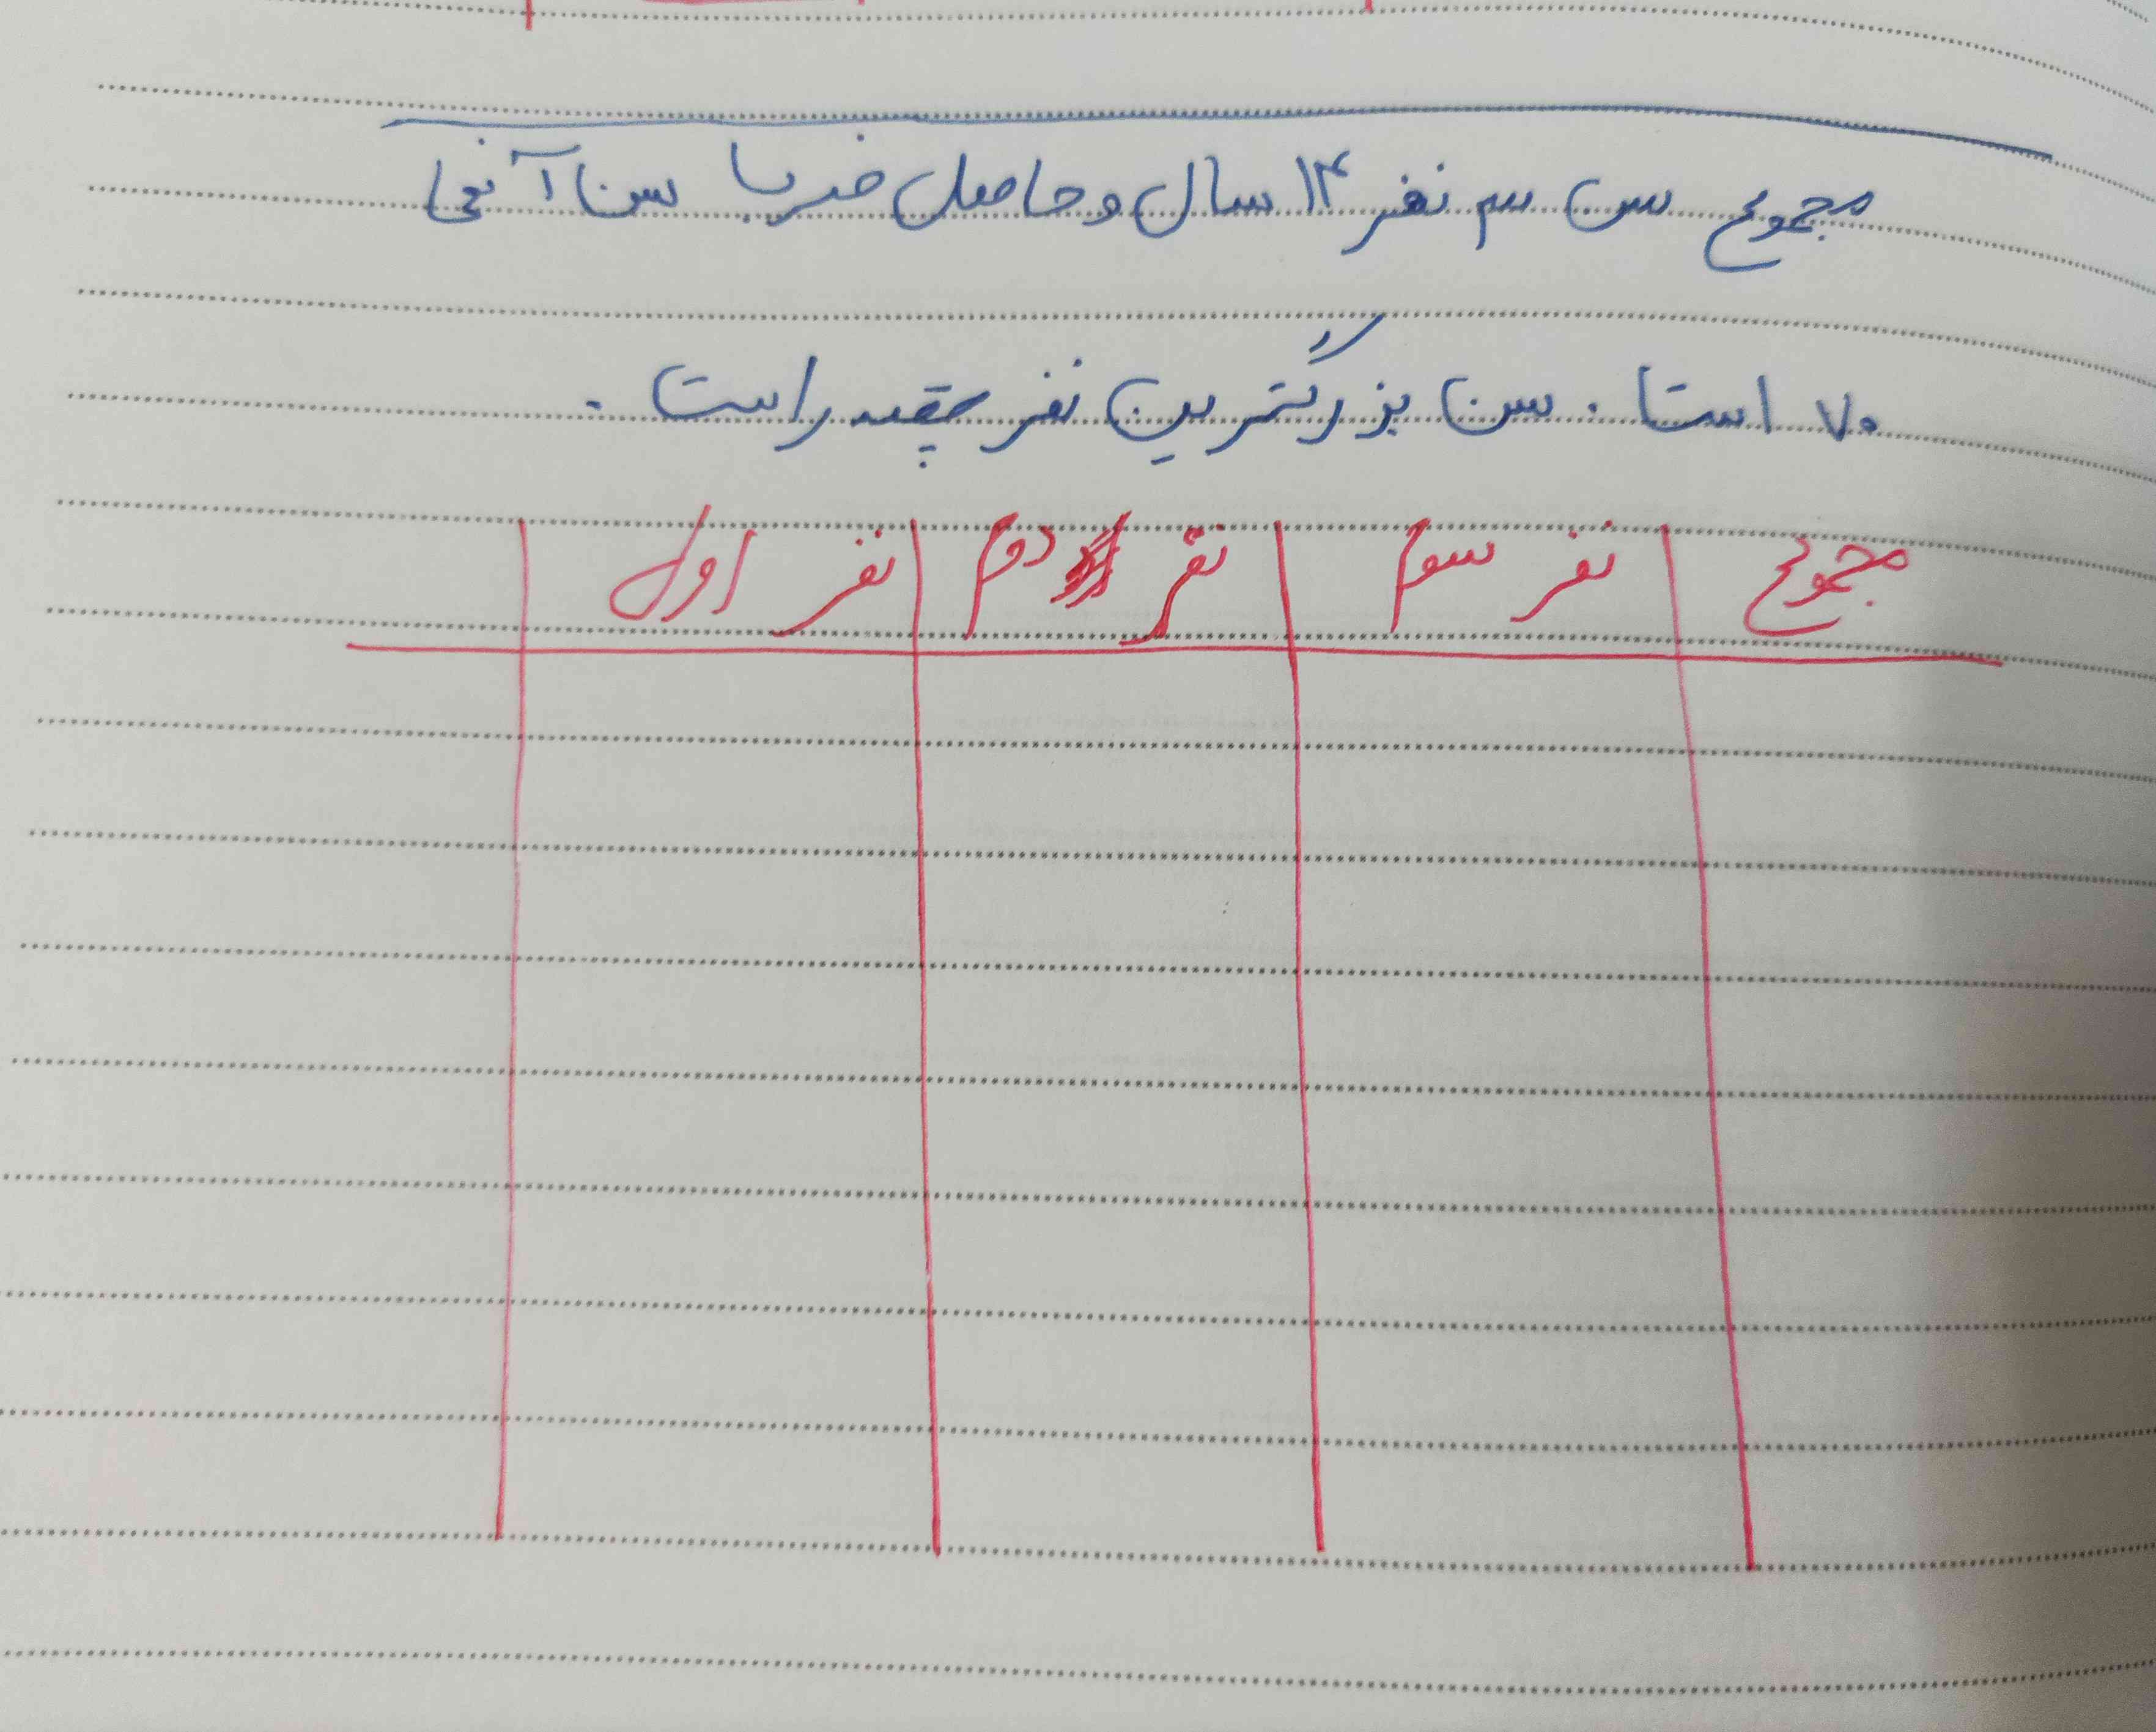 مجموع سن سه نفر ۱۴ سال و حاصل ضرب سن آنها
۷۰ است. سن بزرگترین نفر چقدر است.
مجموع نفر سوم نفر دوم نفر اول